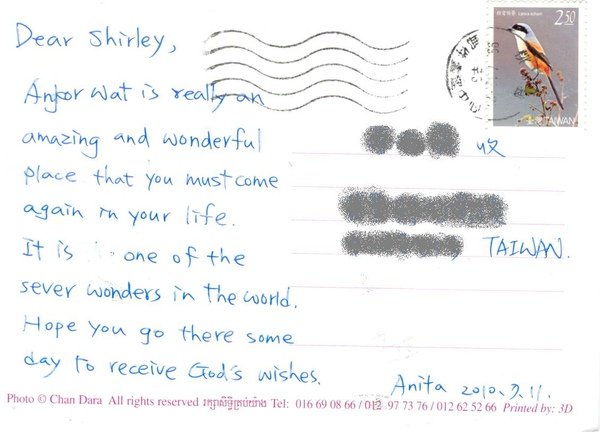 Dear Shirley,
Ankor Wat is really an
amazing and wonderful
place that you must come
again in your life.
It is one of the
sever wonders in the world.
Hope you go there some
day to receive God's wishes.
Anita 2010.9.11.
2.50
Lanius schach
TAIWAN
收
TAIWAN.
Photo © Chan Dara All rights reserved រក្សាសិទ្ធិគ្រប់យ៉ាង Tel: 016 69 08 66 / 012 97 73 76 / 012 62 52 66 Printed by: 3D